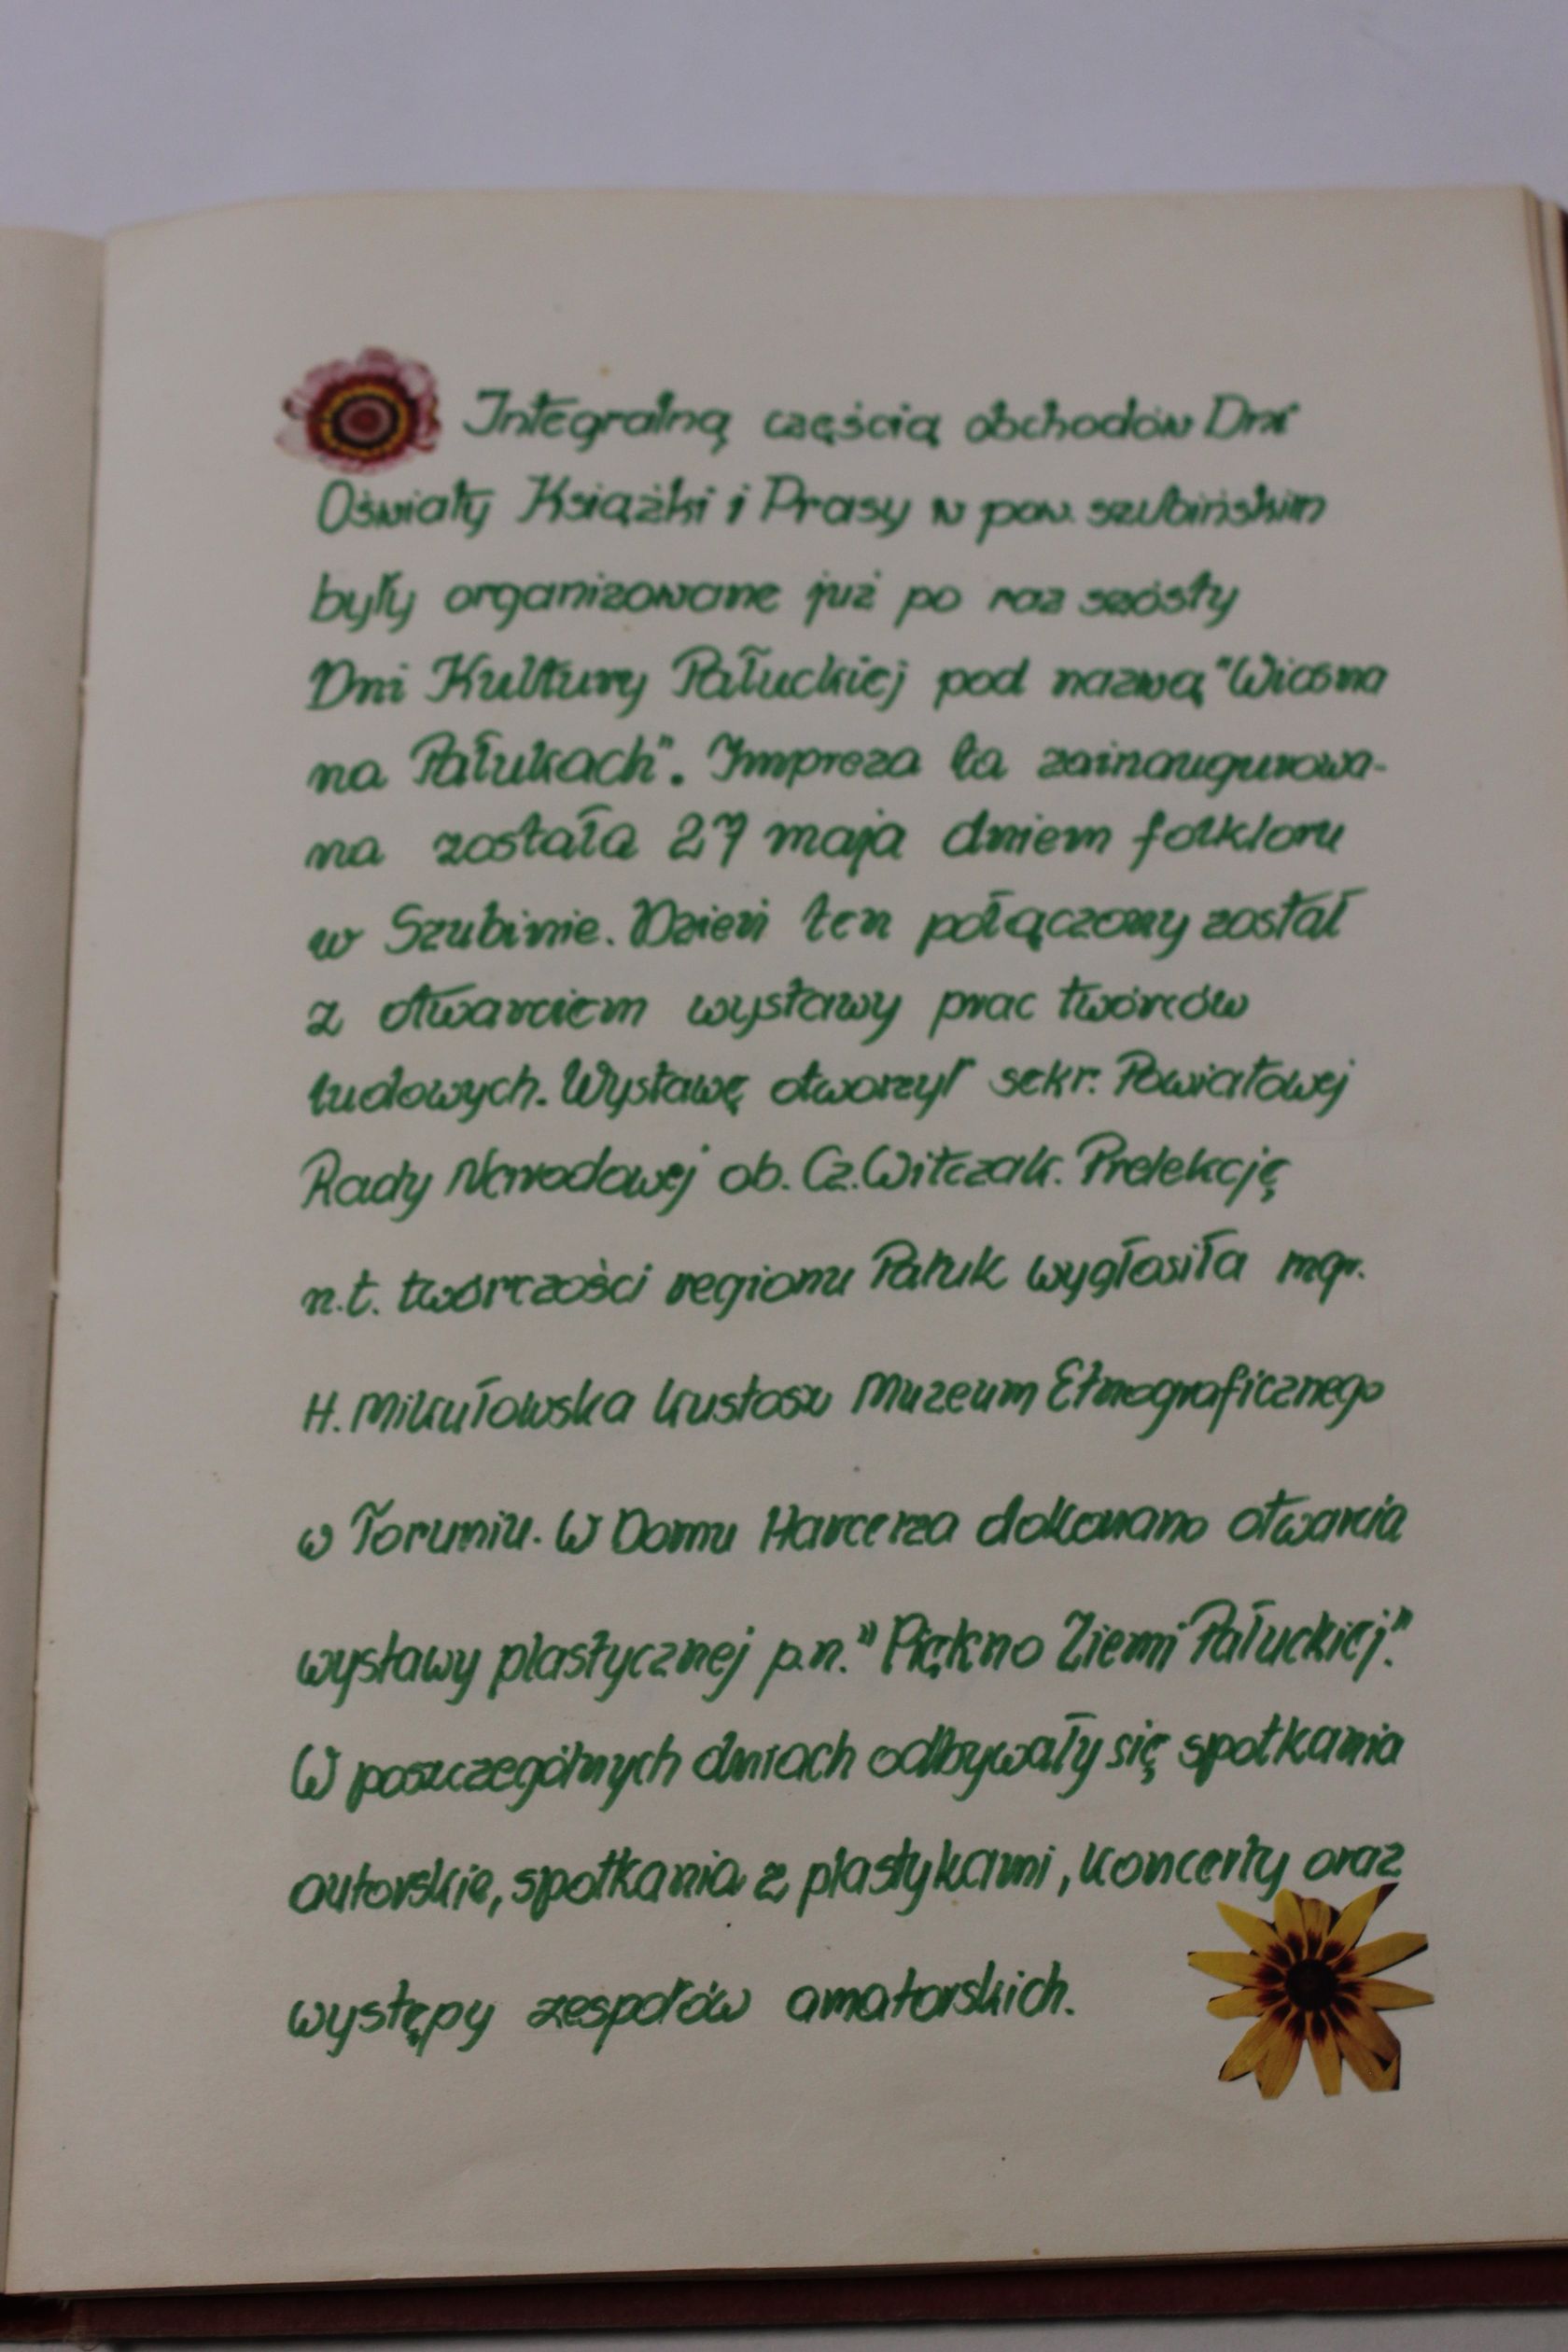 Integralną częścią obchodów Dni
Oświaty Książki i Prasy w pow. szubińskim
były organizowane już po raz szósty
Dni Kultury Pałuckiej pod nazwą "Wiosna
na Pałukach". Impreza ta zainaugurowa-
na została 27 maja dniem folkloru
w Szubinie. Dzień ten połączony został
z otwarciem wystawy prac twórców
ludowych. Wystawę otworzył sekr. Powiatowej
Rady Narodowej ob. Cz. Witczak. Prelekcję
n.t. twórczości regionu Pałuk wygłosiła mgr.
H. Mikułowska kustosz Muzeum Etnograficznego
w Toruniu. W Domu Harcerza dokonano otwarcia
wystawy plastycznej p.n. "Piękno Ziemi Pałuckiej."
W poszczególnych dniach odbywały się spotkania
autorskie, spotkania z plastykami, koncerty oraz
występy zespołów amatorskich.